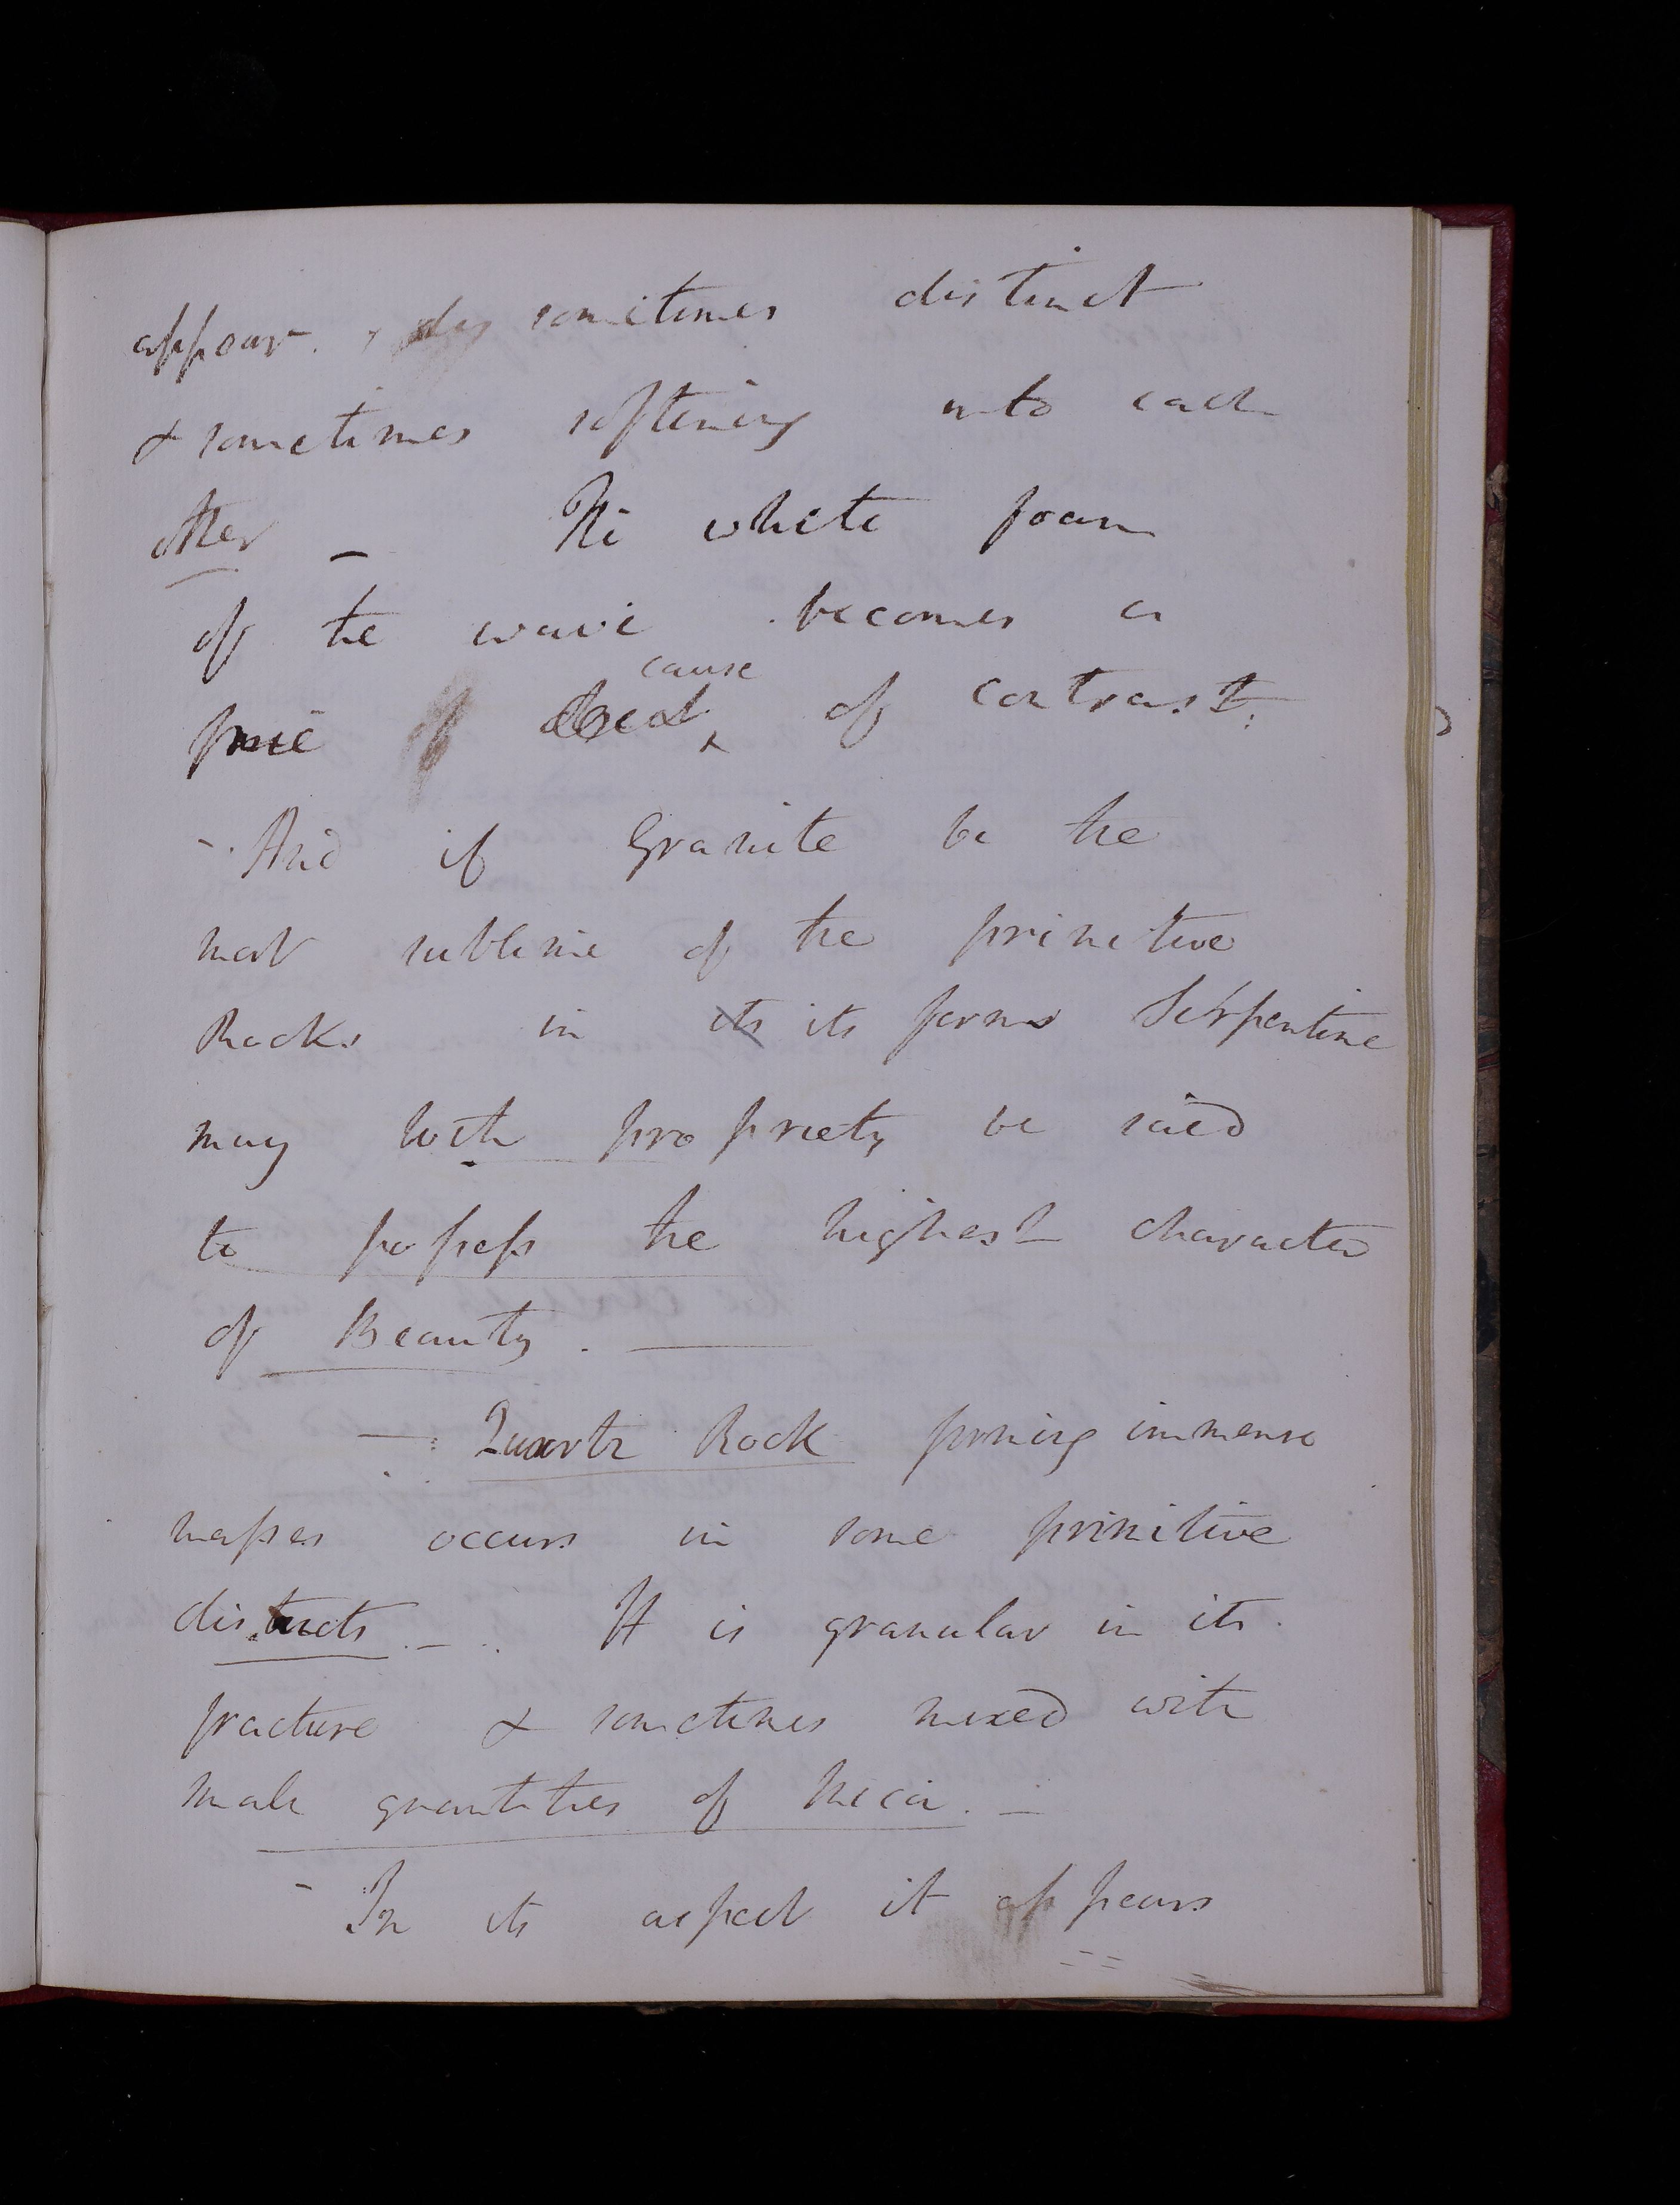 appear. sometimes distinct
& sometimes softening into each
other _ The white foam
of the wave becomes a
cause
fine of contrast:
- And if Granite be the
most sublime of the primitive
Rocks in its its forms Serpentine
may with propriety be said
to possess the highest character
of Beauty. —
—: Quartz Rock forming immense
masses occurs in some primitive
districts. — It is granular in its
fracture & sometimes mixed with
small quantities of Mica. —
- In its aspect it appears